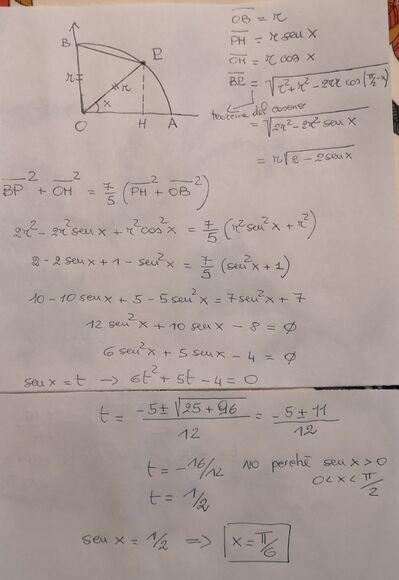 B
P
r
r
x
O
H
A
OB = r
PH = r sen x
OH = r cos x
BP = √r²+r²-2rr cos(π/2-x)
teorema del coseno
= √2r²-2r² sen x
= r√2-2sen x
BP² + OH² = 7/5 (PH² + OB²)
2r²-2r² sen x + r² cos² x = 7/5 (r² sen² x + r²)
2-2 sen x + 1 - sen² x = 7/5 (sen² x + 1)
10 - 10 sen x + 5 - 5 sen² x = 7 sen² x + 7
12 sen² x + 10 sen x - 8 = ∅
6 sen² x + 5 sen x - 4 = ∅
sen x = t → 6t² + 5t - 4 = 0
t = -5 ± √25 + 96 / 12 = -5 ± 11 / 12
t = -16/12 NO perché sen x > 0
0 < x < π/2
t = 1/2
sen x = 1/2 ⇒ x = π/6